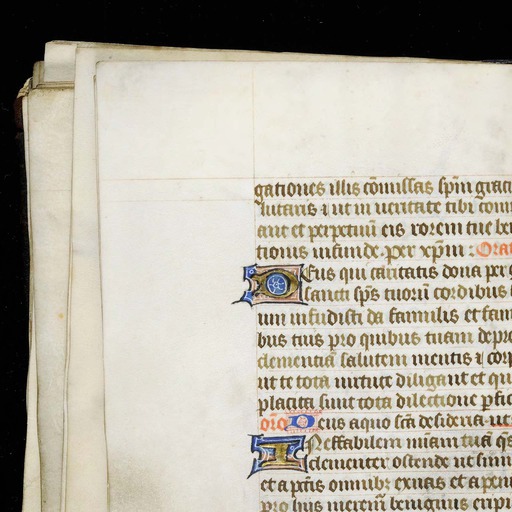 gationes illis cōmissas spm̄ grati
lutaris ⁊ ut in ueritate tibi com
ant et perpetuū eis rorem tue be
tionis infunde. per xp̄m : Orat
Deus qui caritatis dona per g
sancti sp̄s tuorū cordibus
um infudisti da famulis et fam
bus tuis pro quibus tuam depre
clementiā salutem mentis ⁊ corp
ut te tota uirtute diligant et qu
placita sunt tota dilectione pfic
or̄o Deus a quo sc̄a desideria. ut
Ineffabilem miām tuā qs
clementer ostende ut simu
et a pctis omnibꝫ exuas et a pen
pro hiis meremr̄ benignus erip